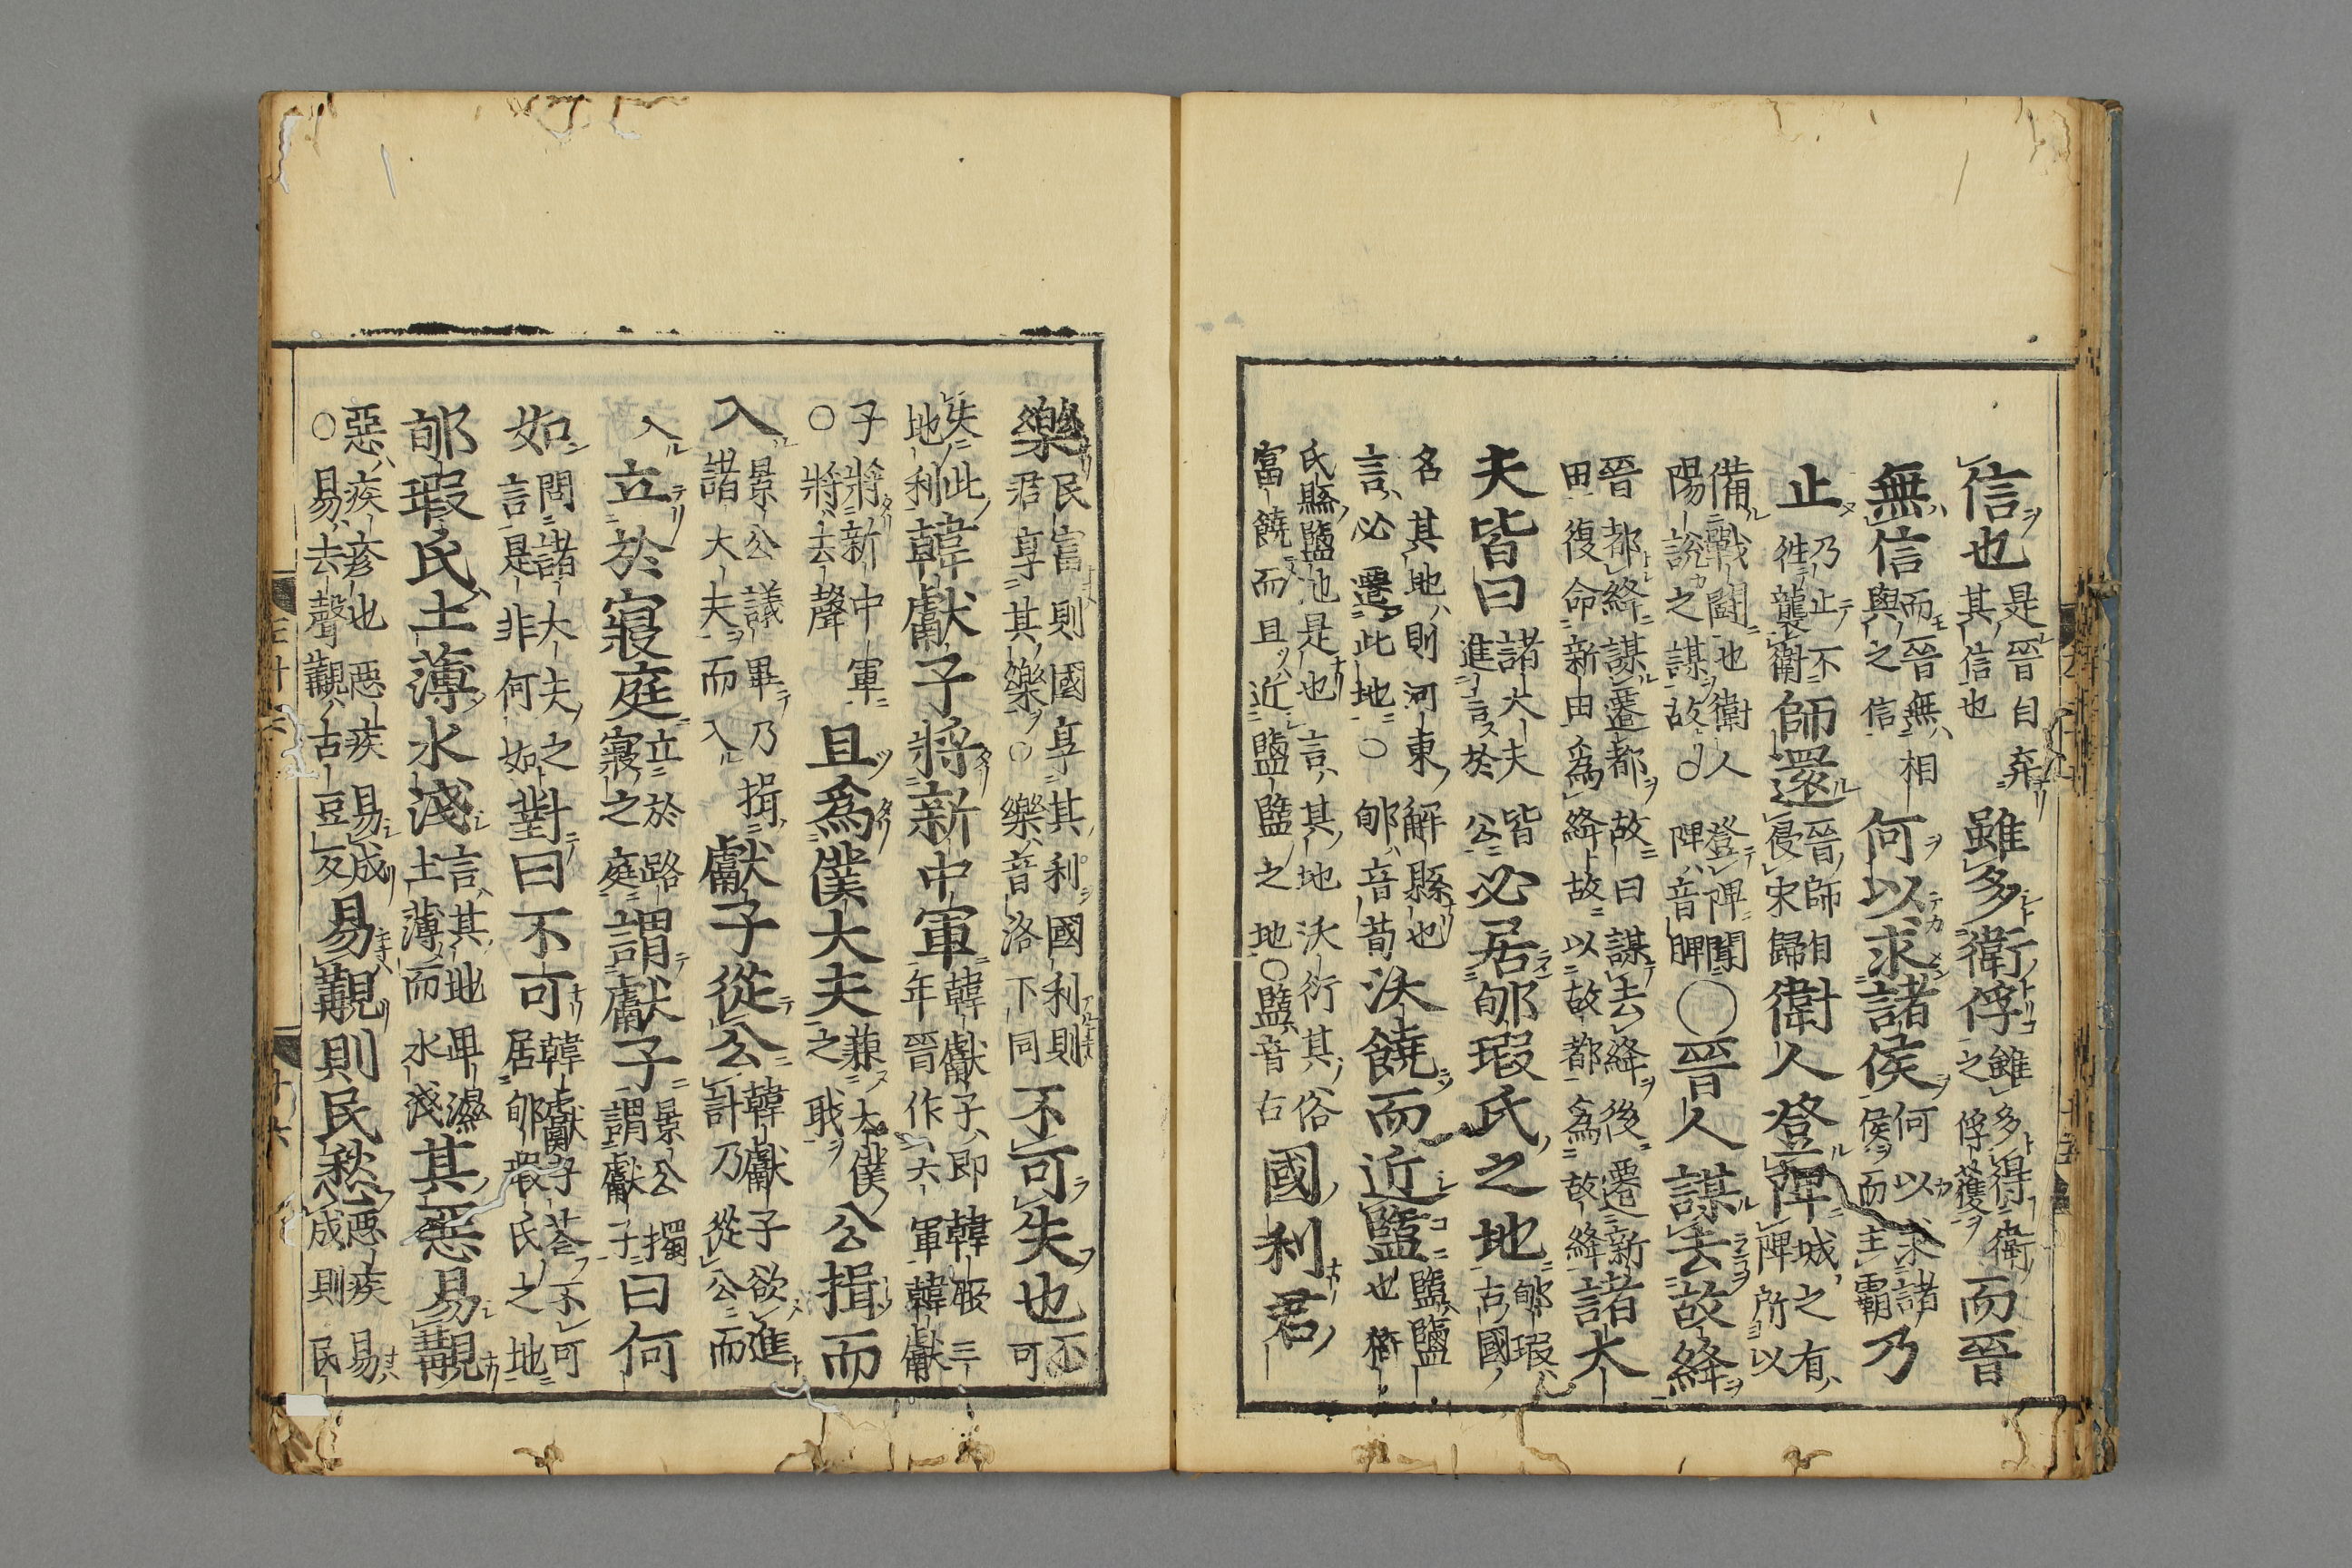 信也是晉自弃其信也雖多衛俘雖多得衛之俘獲而晉
無信而晉無相與之信何以求諸侯何以求諸侯而主霸乃
止乃止不徃襲衛師還晉師自侵宋歸衛人登陴城之有陴所以
備戰鬪也衛人登陴聞陽說之謀故○陴音睥〇晉人謀去故絳
晉都絳謀遷都故曰謀去絳後遷新田復命新田為絳故以故都為故絳諸大
夫皆曰諸大夫皆進言於公必居郇瑕氏之地郇瑕古國
名其地則河東解縣也言必遷此地○郇音荀沃饒而近盬盬鹽也猗
氏縣鹽也是也言其地沃衍其俗富饒而且近鹽盬之地○盬音古國利君
樂民富則國享其利國利則君享其樂○樂音洛下同不可失也不可
失此地利韓獻子將新中軍韓獻子即韓厥三年晉作六軍韓獻
子將新中軍○將去聲且為僕大夫兼大僕之職公揖而
入景公議畢乃揖諸大夫而入獻子從公韓獻子欲進計乃從公而
入立於寢庭立於路寢之庭謂獻子景公獨謂獻子曰何
如問諸大夫之言是非何如對曰不可韓獻子荅不可居郇瑕氏之地
郇瑕氏土薄水淺言其地卑濕土薄而水淺其惡易覯
惡疾疹也惡疾易成○易去聲覯古豆反易覯則民愁惡疾易成則民
三十三
十六